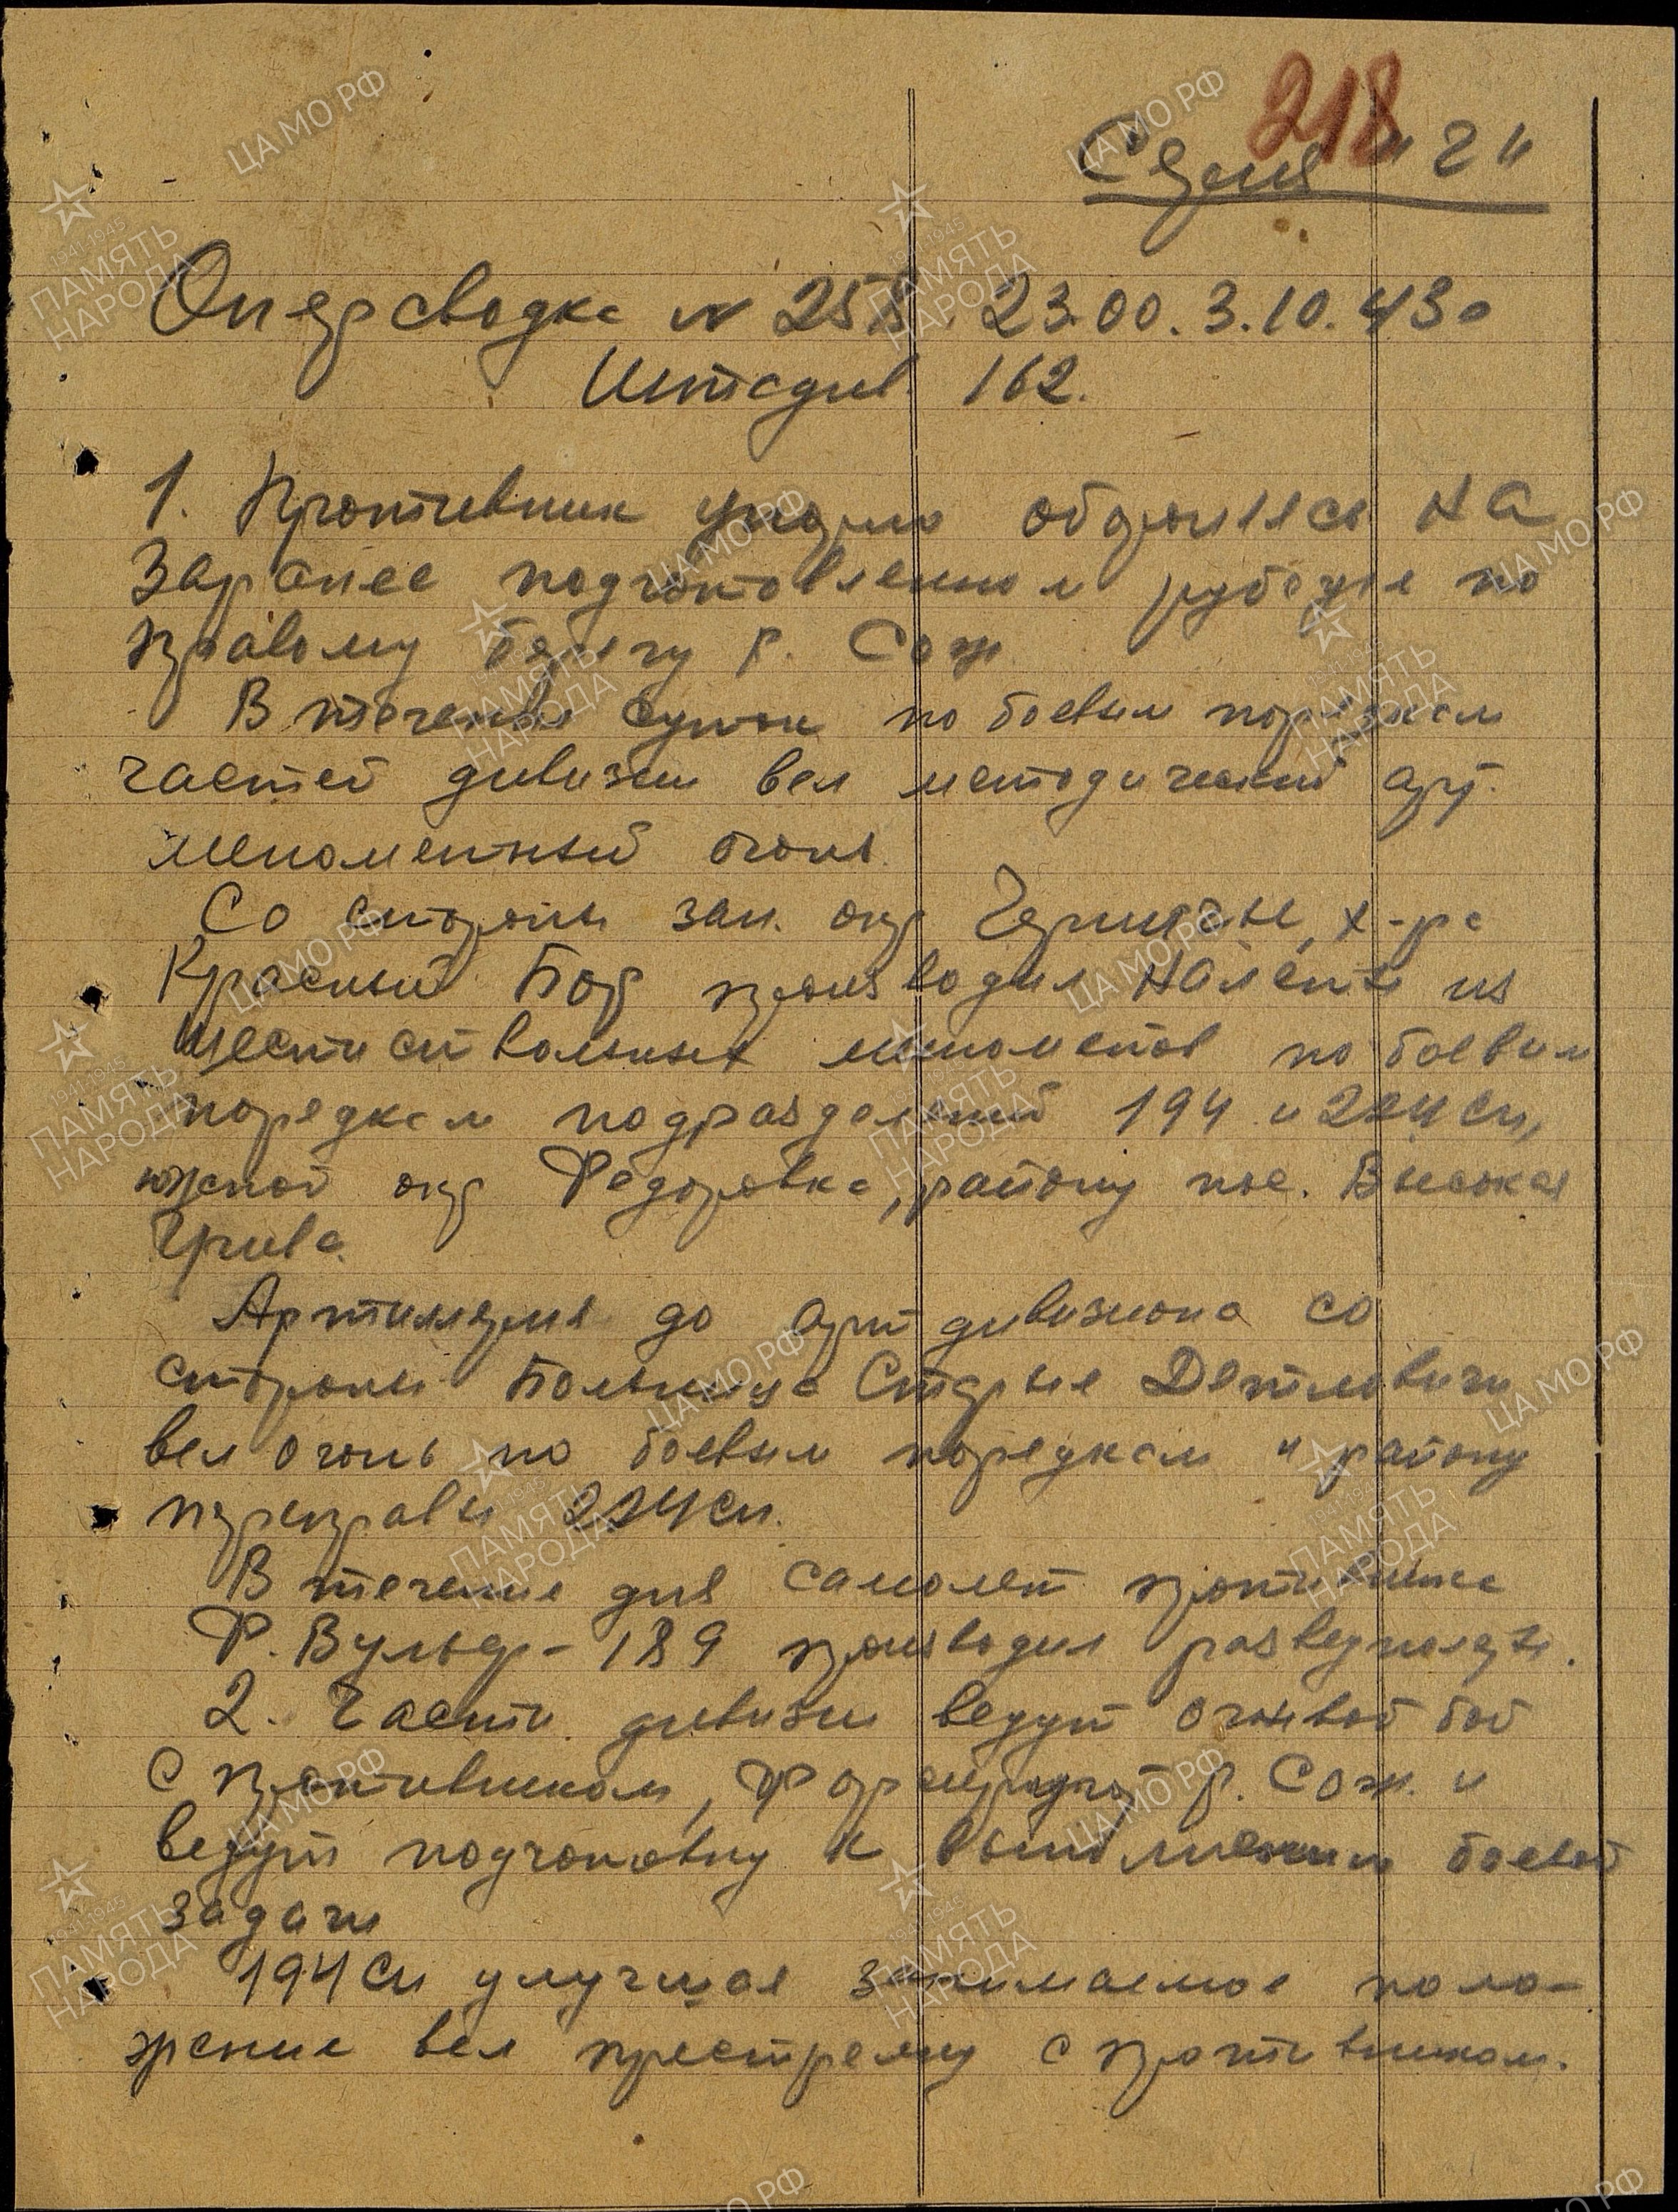 218
Серия "Г"
Оперсводка № 258 23.00. 3.10.43г
Штадив 162.
1. Противник упорно обороняется на
заранее подготовленном рубеже по
правому берегу р. Сож
В течение суток по боевым порядкам
частей дивизии вел методический арт.
минометный огонь.
Со стороны зап. окр Чернятые, х-ра
Красный Бор производил налеты из
шестиствольных минометов по боевым
порядкам подразделений 194 и 224 сп,
южной окр Федоровка, району пос. Высокая
Грива.
Артиллерия до артдивизиона со
стороны Больница Старые Дятловичи
вел огонь по боевым порядкам и району
переправы 224 сп.
В течение дня самолет противника
Ф. Вульф-189 производил разведполеты.
2. Части дивизии ведут огневой бой
с противником, р. Сож. и
ведут подготовку к выполнению боевой
задачи
194 Сп улучшая занимаемое поло-
жение вел перестрелку с противником.